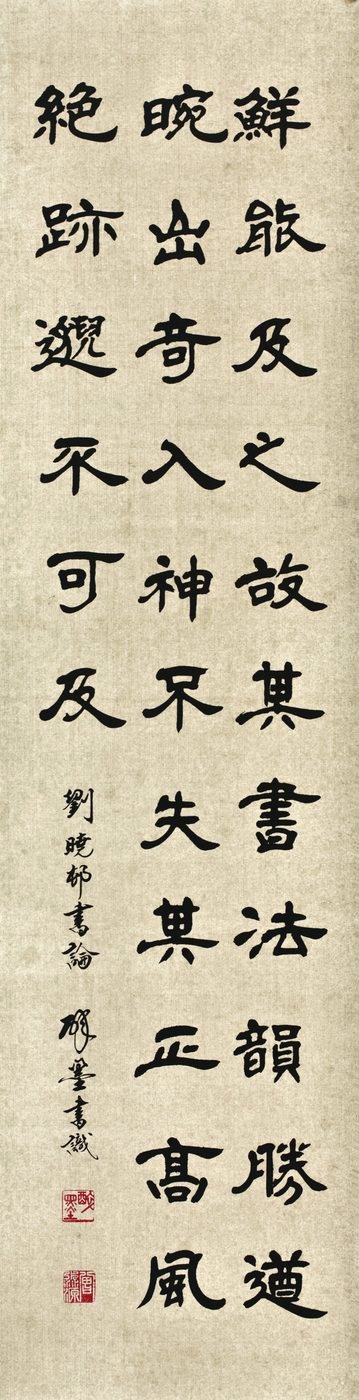 鮮能及之故其書法韻勝遒
晼出奇入神不失其正高風
絕跡邈不可及
劉曉邨書論 醉墨書識